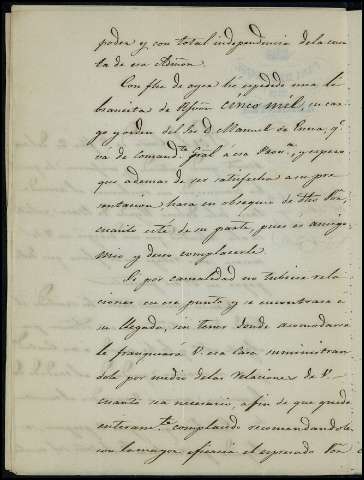 poder y con total independencia de la cuen
ta de esa Admon.
Con fha de ayer he espedido una li
brancita de Rsvon cinco mil, en car
go y orden del Sor D. Manuel de
va de comand.te Gral á esa Prov.a, y espero
que ademas de ser satisfecha a su pre
sentacion, hara en obsequio de dho Sor,
cuanto esté de su parte, pues és amigo
mio y deseo complacerle.
Si por casualidad no tubiese rela
ciones en ese punto y se encontrase a
su llegada, sin tener donde acomodarse
le franqueará V. esa Casa suministran
dole por medio de las relaciones de V.
cuanto sea necesario, a fin de que quede
enteram.te complacido recomendandole
con la mayor eficacia el espresado Sor